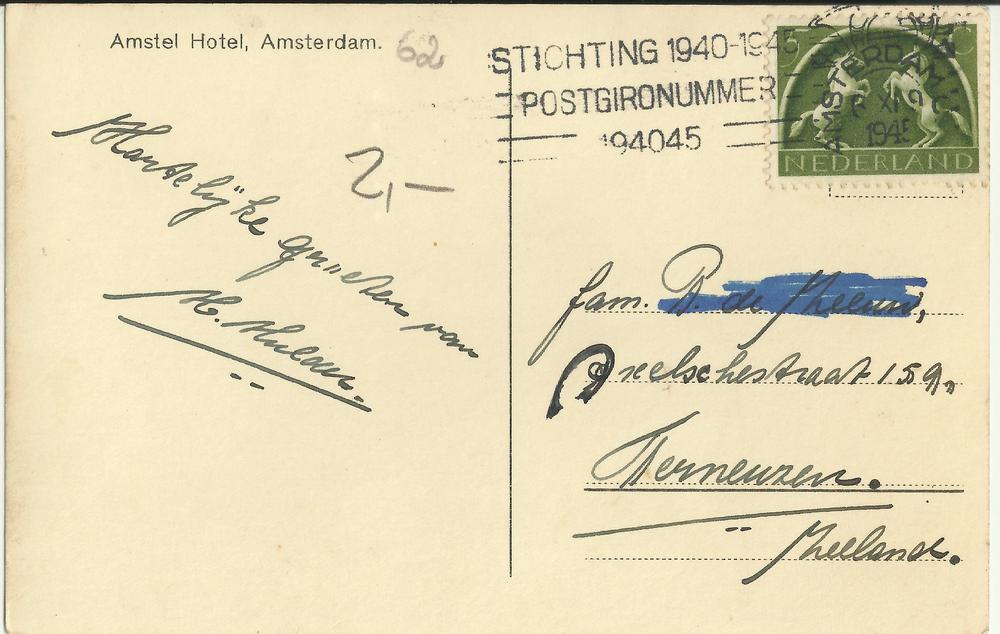 Amstel Hotel, Amsterdam.
62
STICHTING 1940-1945
POSTGIRONUMMER
194045
AMSTERDAM
XI
1945
5 C
NEDERLAND
2,-
Hartelijke groeten van
H.
fam. B. de Meeuw,
Axelschestraat 159,
Terneuzen.
Zeeland.